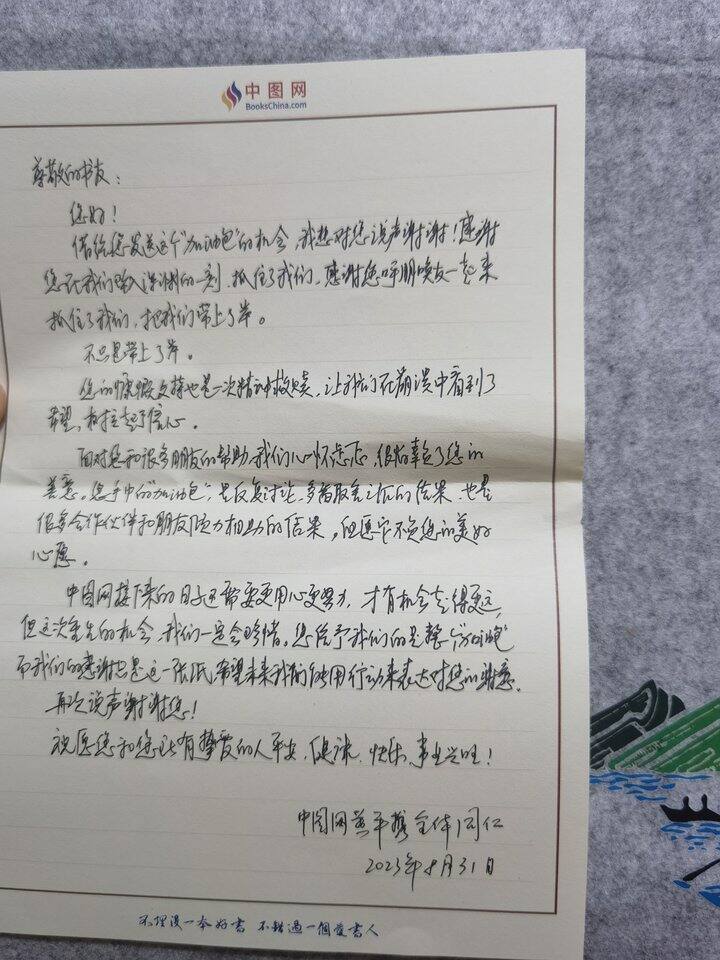 中图网
BooksChina.com
尊敬的书友：
您好！
借给您发送这个“加油包”的机会，我想对您说声谢谢！感谢
您在我们陷入深渊的一刻，抓住了我们，感谢您呼朋唤友一起来
抓住了我们，把我们带上了岸。
不只是带上了岸。
您的慷慨支持也是一次精神救赎，让我们在崩溃中看到了
希望，树立起了信心。
面对您和很多朋友的帮助，我们心怀忐忑，很怕辜负了您的
善意。您手中的“加油包”，是反复讨论、多番取舍之后的结果，也是
很多合作伙伴和朋友倾力相助的结果，但愿它不负您的美好
心愿。
中图网接下来的日子还需要更用心更努力，才有机会走得更远，
但这次重生的机会，我们一定会珍惜。您给予我们的是整个“加油包”
而我们的感谢也是这一张纸，希望未来我们能用行动来表达对您的谢意。
再次说声谢谢您！
祝愿您和您所有挚爱的人平安、健康、快乐、事业兴旺！
中图网黄平携全体同仁
2023年8月31日
不埋没一本好書 不錯過一個愛書人